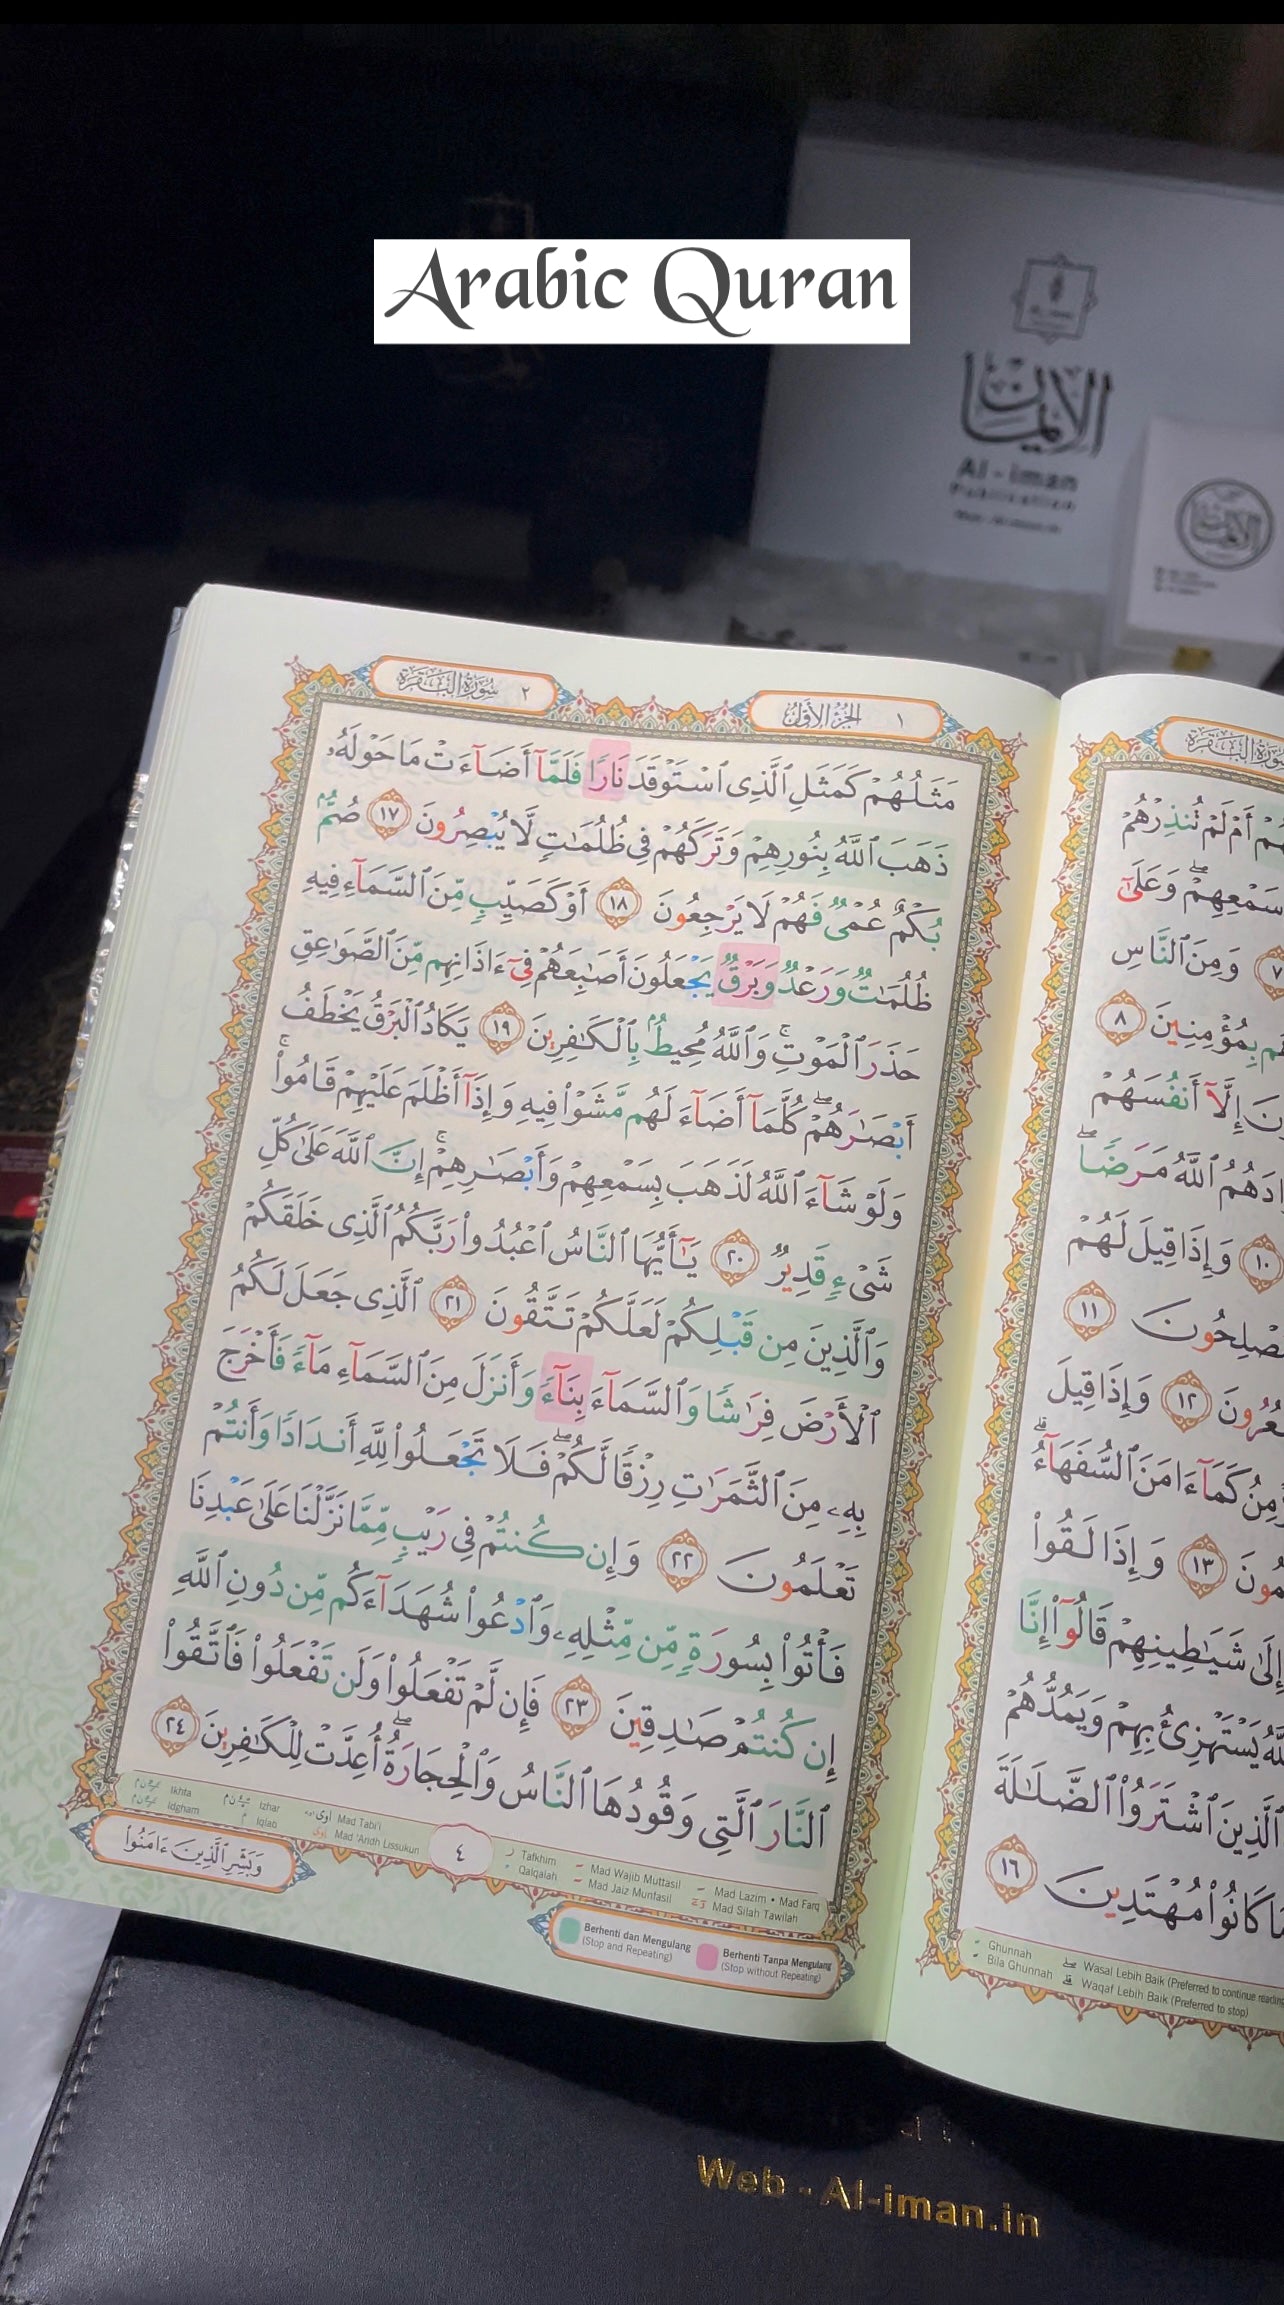 Arabic Quran
الإيمان
Al-iman
Publication
الإيمان
سُورَةُ البَقَرَةِ ٢
الجُزْءُ الأَوَّلُ ١
مَثَلُهُمْ كَمَثَلِ ٱلَّذِى ٱسْتَوْقَدَ نَارًا فَلَمَّآ أَضَآءَتْ مَا حَوْلَهُۥ
ذَهَبَ ٱللَّهُ بِنُورِهِمْ وَتَرَكَهُمْ فِى ظُلُمَـٰتٍ لَّا يُبْصِرُونَ ١٧ صُمٌّۢ
بُكْمٌ عُمْىٌ فَهُمْ لَا يَرْجِعُونَ ١٨ أَوْ كَصَيِّبٍ مِّنَ ٱلسَّمَآءِ فِيهِ
ظُلُمَـٰتٌ وَرَعْدٌ وَبَرْقٌ يَجْعَلُونَ أَصَـٰبِعَهُمْ فِىٓ ءَاذَانِهِم مِّنَ ٱلصَّوَٰعِقِ
حَذَرَ ٱلْمَوْتِ ۚ وَٱللَّهُ مُحِيطٌۢ بِٱلْكَـٰفِرِينَ ١٩ يَكَادُ ٱلْبَرْقُ يَخْطَفُ
أَبْصَـٰرَهُمْ ۖ كُلَّمَآ أَضَآءَ لَهُم مَّشَوْا۟ فِيهِ وَإِذَآ أَظْلَمَ عَلَيْهِمْ قَامُوا۟ ۚ
وَلَوْ شَآءَ ٱللَّهُ لَذَهَبَ بِسَمْعِهِمْ وَأَبْصَـٰرِهِمْ ۚ إِنَّ ٱللَّهَ عَلَىٰ كُلِّ
شَىْءٍ قَدِيرٌ ٢٠ يَـٰٓأَيُّهَا ٱلنَّاسُ ٱعْبُدُوا۟ رَبَّكُمُ ٱلَّذِى خَلَقَكُمْ
وَٱلَّذِينَ مِن قَبْلِكُمْ لَعَلَّكُمْ تَتَّقُونَ ٢١ ٱلَّذِى جَعَلَ لَكُمُ
ٱلْأَرْضَ فِرَٰشًا وَٱلسَّمَآءَ بِنَآءً وَأَنزَلَ مِنَ ٱلسَّمَآءِ مَآءً فَأَخْرَجَ
بِهِۦ مِنَ ٱلثَّمَرَٰتِ رِزْقًا لَّكُمْ ۖ فَلَا تَجْعَلُوا۟ لِلَّهِ أَندَادًا وَأَنتُمْ
تَعْلَمُونَ ٢٢ وَإِن كُنتُمْ فِى رَيْبٍ مِّمَّا نَزَّلْنَا عَلَىٰ عَبْدِنَا
فَأْتُوا۟ بِسُورَةٍ مِّن مِّثْلِهِۦ وَٱدْعُوا۟ شُهَدَآءَكُم مِّن دُونِ ٱللَّهِ
إِن كُنتُمْ صَـٰدِقِينَ ٢٣ فَإِن لَّمْ تَفْعَلُوا۟ وَلَن تَفْعَلُوا۟ فَٱتَّقُوا۟
ٱلنَّارَ ٱلَّتِى وَقُودُهَا ٱلنَّاسُ وَٱلْحِجَارَةُ ۖ أُعِدَّتْ لِلْكَـٰفِرِينَ ٢٤
Ikhfa Izhar Mad Tabi'i
Idgham Iqlab Mad 'Aridh Lissukun
٤
Tafkhim Mad Wajib Muttasil Mad Lazim • Mad Farq
Qalqalah Mad Jaiz Munfasil Mad Silah Tawilah
وَبَشِّرِ ٱلَّذِينَ ءَامَنُوا۟
Berhenti dan Mengulang
(Stop and Repeating)
Berhenti Tanpa Mengulang
(Stop without Repeating)
سُورَةُ البَقَرَةِ
أَمْ لَمْ تُنذِرْهُمْ
سَمْعِهِمْ ۖ وَعَلَىٰٓ
٧ وَمِنَ ٱلنَّاسِ
بِمُؤْمِنِينَ ٨
إِلَّآ أَنفُسَهُمْ
ٱللَّهُ مَرَضًا ۖ
١٠ وَإِذَا قِيلَ لَهُمْ
١١
١٢ وَإِذَا قِيلَ
كَمَآ ءَامَنَ ٱلسُّفَهَآءُ ۗ
١٣ وَإِذَا لَقُوا۟
إِلَىٰ شَيَـٰطِينِهِمْ قَالُوٓا۟ إِنَّا
يَسْتَهْزِئُ بِهِمْ وَيَمُدُّهُمْ
ٱلَّذِينَ ٱشْتَرَوُا۟ ٱلضَّلَـٰلَةَ
كَانُوا۟ مُهْتَدِينَ ١٦
Ghunnah Wasal Lebih Baik (Preferred to continue reading
Bila Ghunnah Waqaf Lebih Baik (Preferred to stop)
Web - Al-iman.in